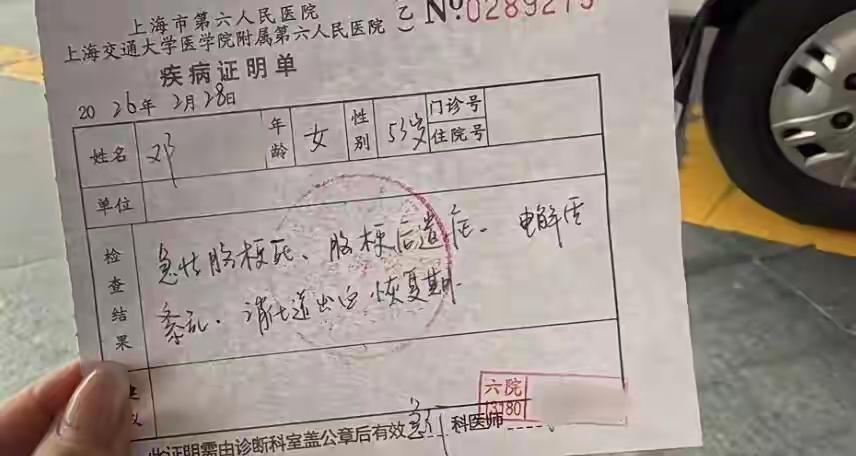 上海市第六人民医院
上海交通大学医学院附属第六人民医院 (乙) No.0289275
疾病证明单
2026年2月28日
姓名 邓 年龄 女 性别 53岁 门诊号 住院号
单位
检查结果 急性脑梗死、脑梗后遗症、电解质
紊乱、消化道出血恢复期
六院
3180
此证明需由诊断科室盖公章后有效 急诊 科医师